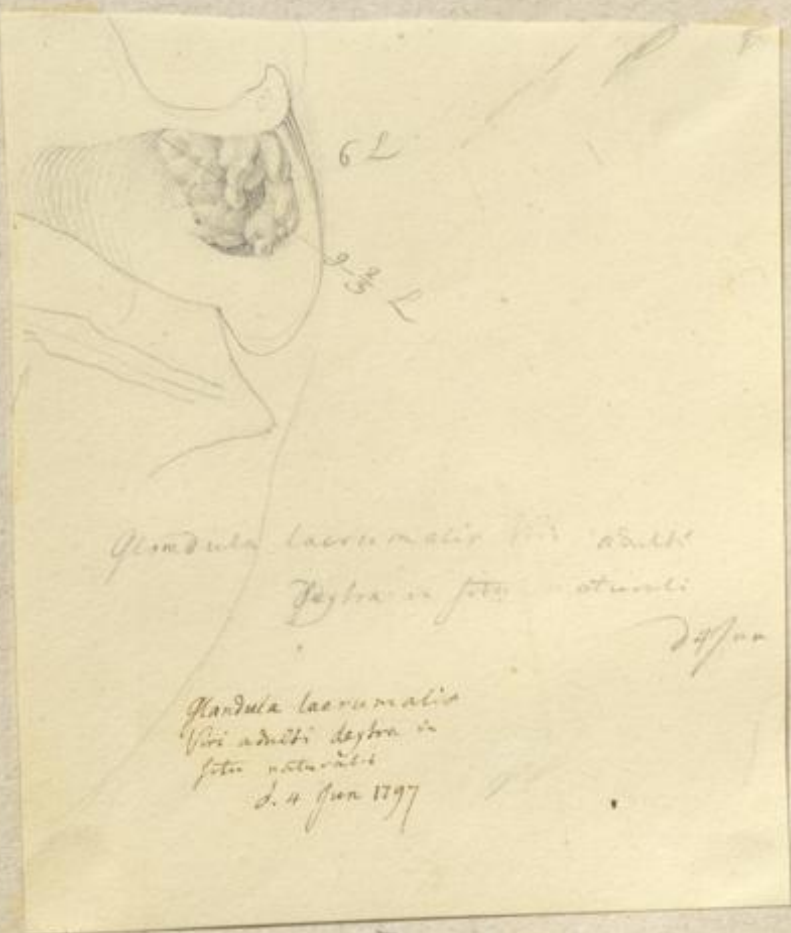 6 L
9 - 2/3 L
Glandula lacrumalis Viri adulti
Dextra in situ naturali
d 4 Jun
Glandula lacrumalis
Viri adulti dextra in
situ naturali
d. 4 Jun 1797